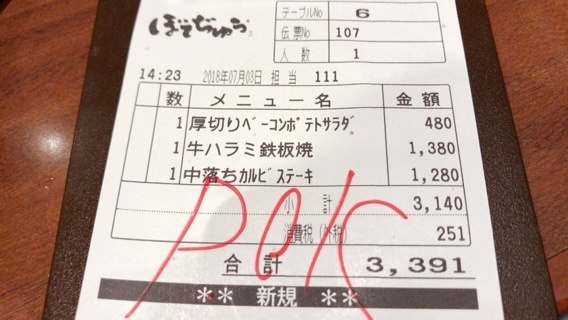 ぼてぢゅう
テーブルNo 6
伝票No 107
人数 1
14:23 2018年07月03日 担当 111
数 メニュー名 金額
1 厚切りベーコンポテトサラダ 480
1 牛ハラミ鉄板焼 1,380
1 中落ちカルビステーキ 1,280
小計 3,140
消費税(外税) 251
合計 3,391
** 新規 **